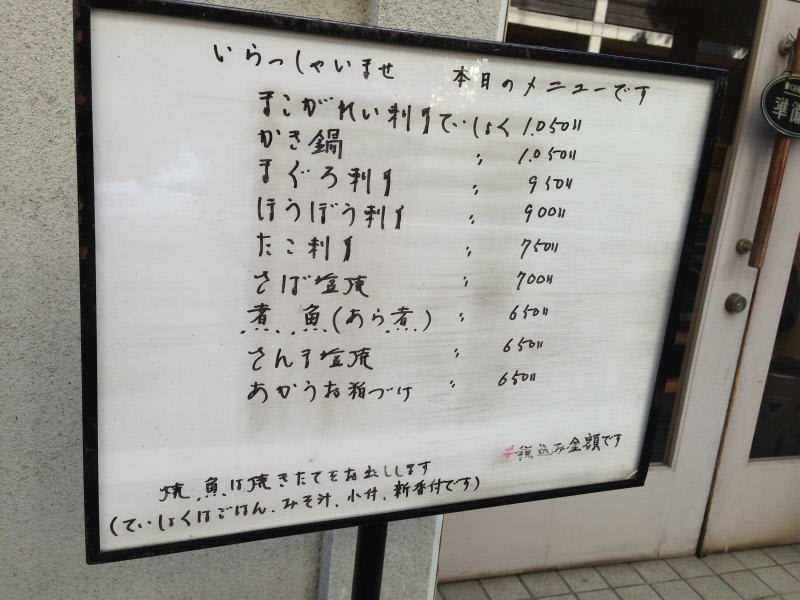 いらっしゃいませ 本日のメニューです
まこがれい刺身ていしょく 1.050円
かき鍋 〃 1.050円
まぐろ刺身 〃 950円
ほうぼう刺身 〃 900円
たこ刺身 〃 750円
さば塩焼 〃 700円
煮魚(あら煮) 〃 650円
さんま塩焼 〃 650円
あかうお粕づけ 〃 650円
税込み金額です
焼魚は焼きたてをお出しします
(ていしょくはごはん、みそ汁、小付、新香付です)